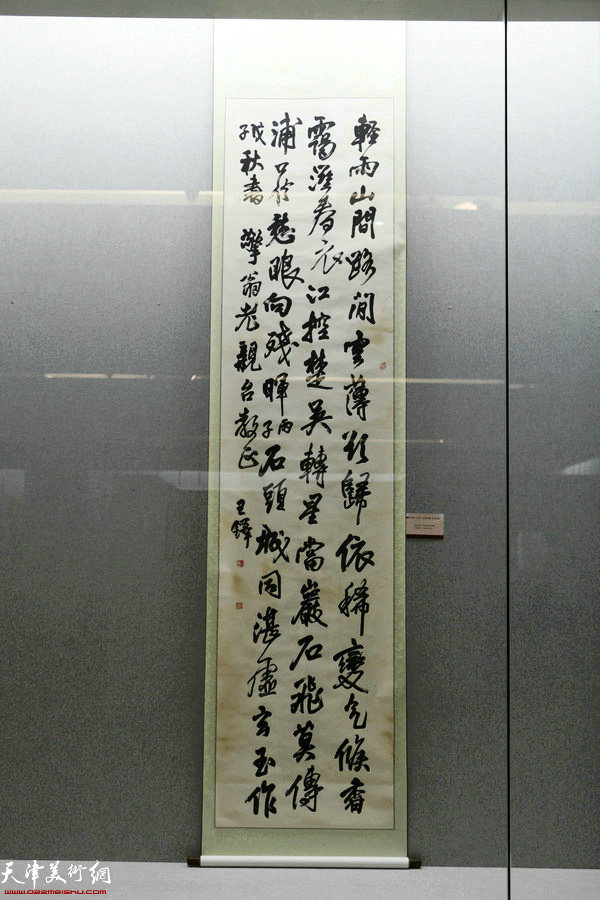 輕雨山間路閒雲薄欲歸依稀變气候香
靄滋春衣江控楚吴轉星當巖石飛莫傳
浦口於愁眼向殘暉丙子石頭城同湛虛玄玉作
戊子秋書擎翁老親台教正
王鐸
天津美術網
www.022meishu.com